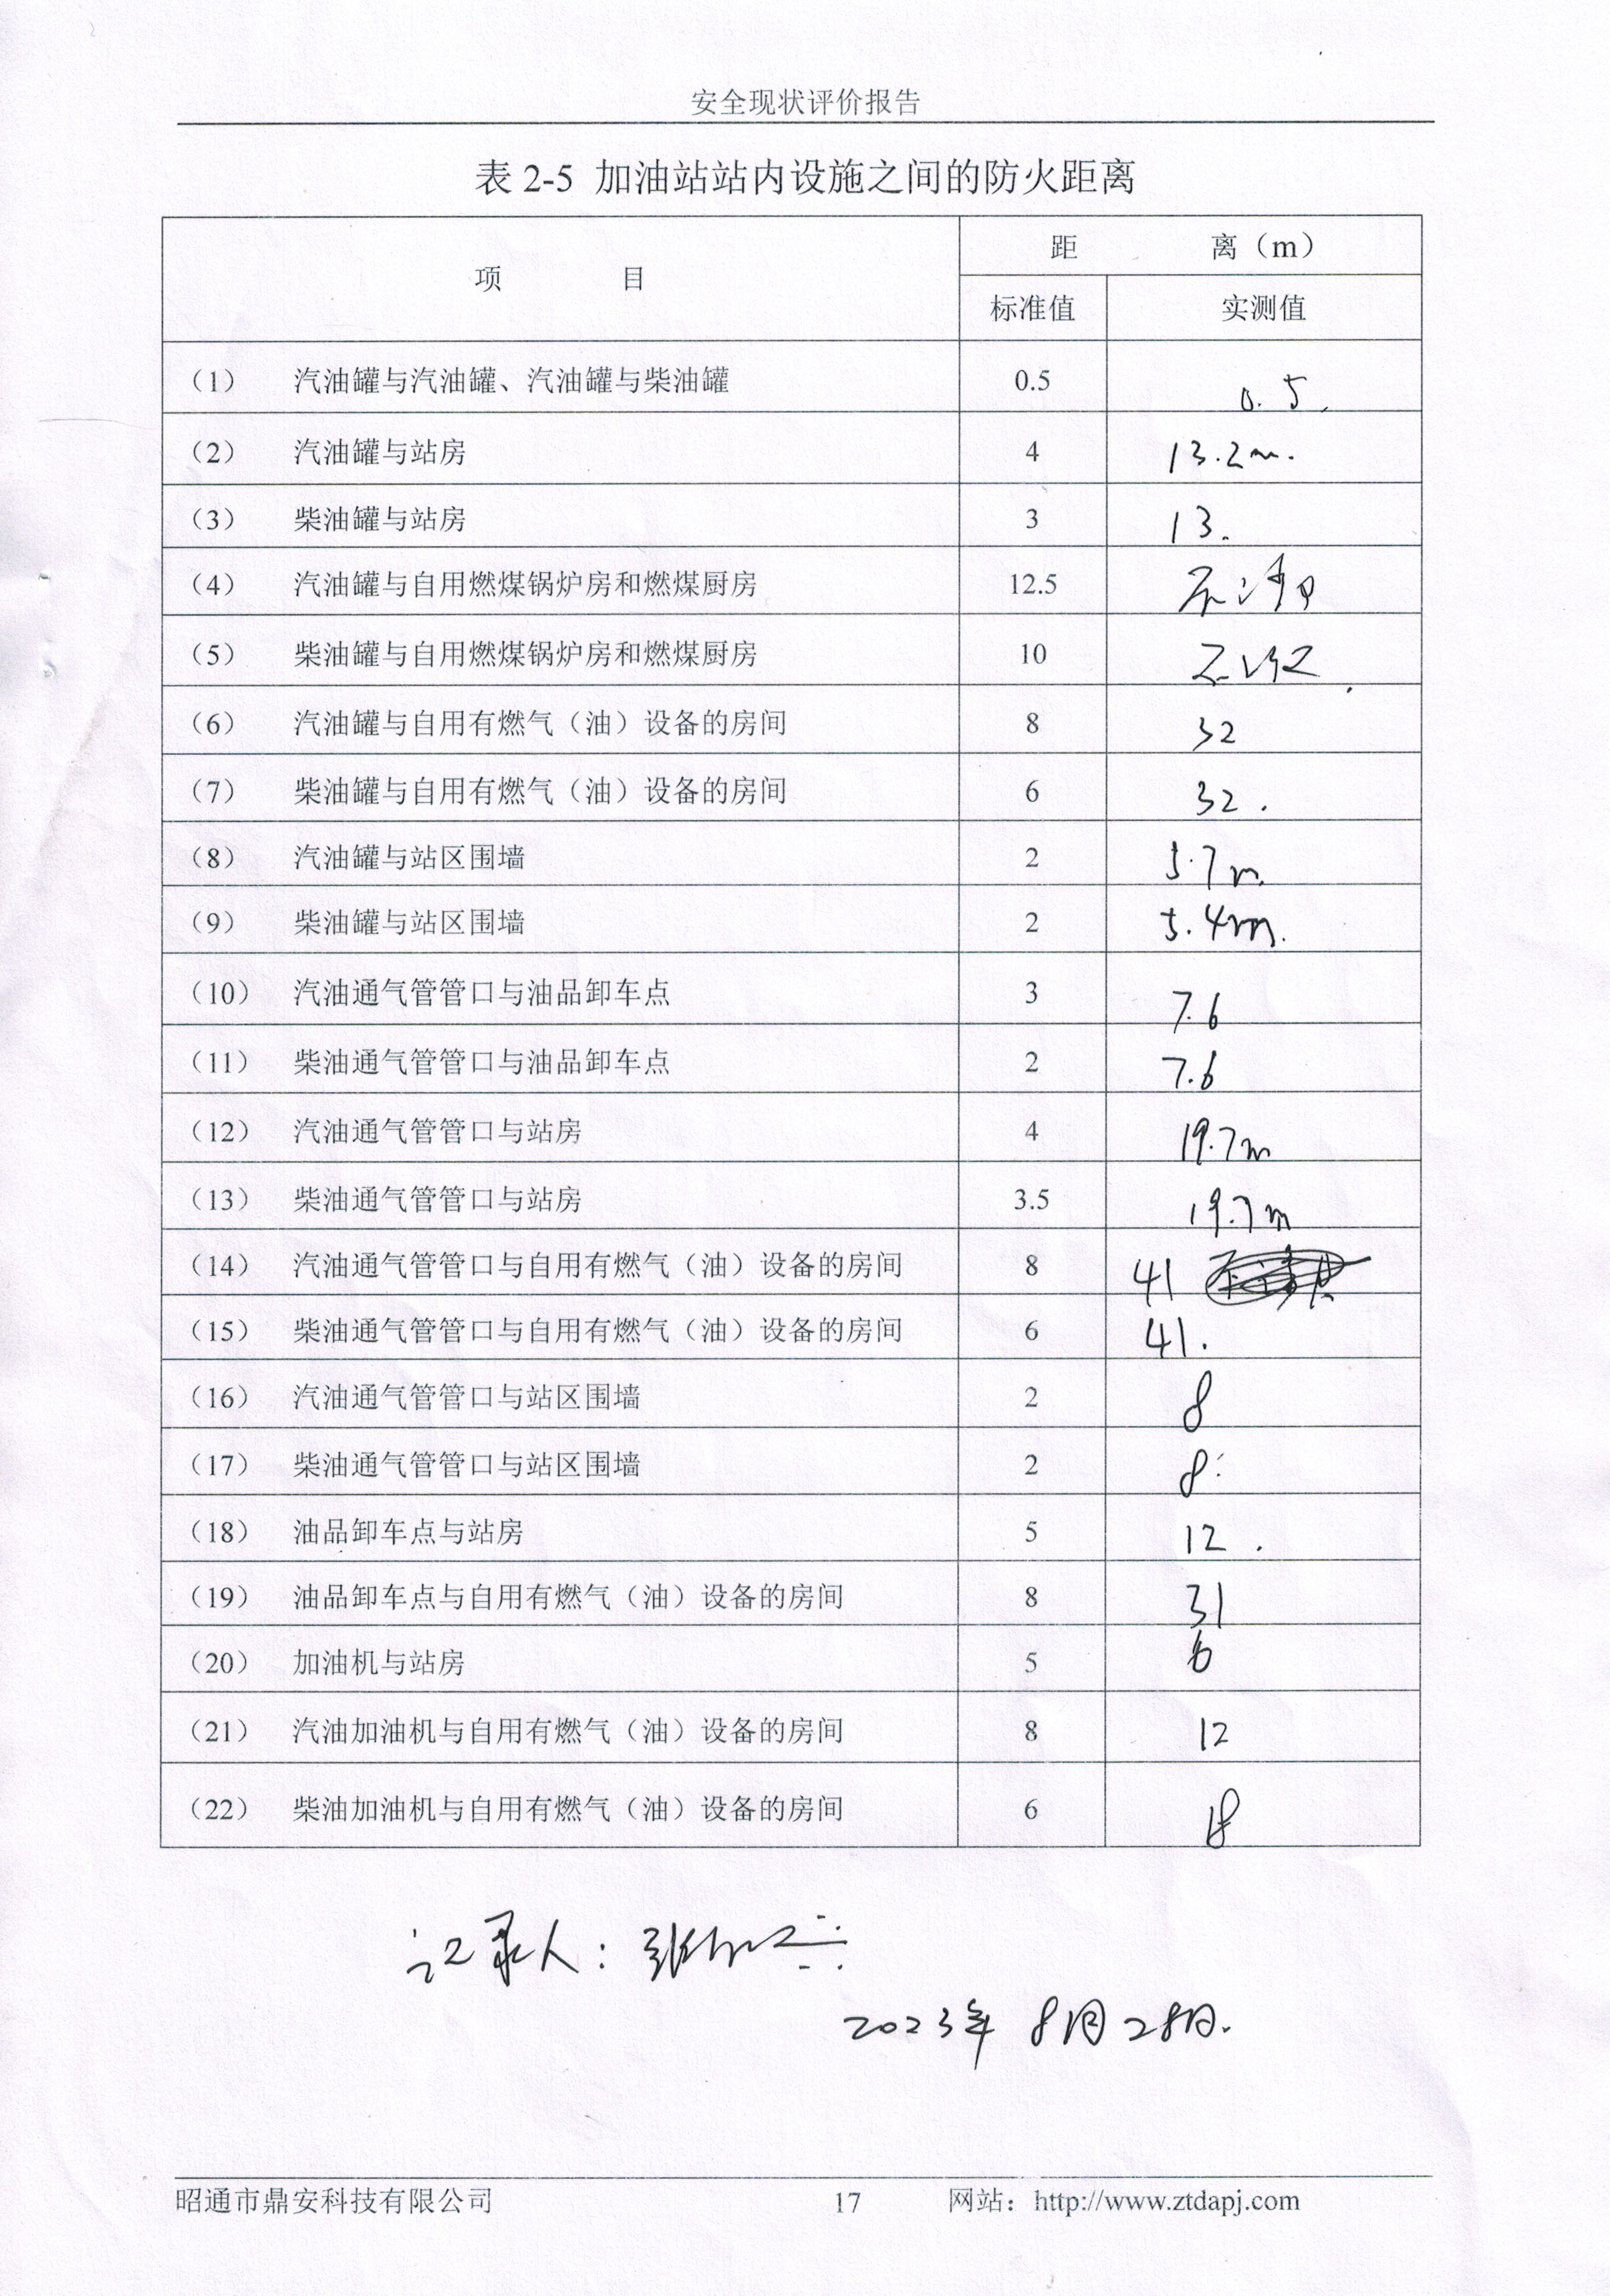 安全现状评价报告
表 2-5 加油站站内设施之间的防火距离
项 目 距 离（m）
标准值 实测值
（1） 汽油罐与汽油罐、汽油罐与柴油罐 0.5 0.5
（2） 汽油罐与站房 4 13.2m.
（3） 柴油罐与站房 3 13.
（4） 汽油罐与自用燃煤锅炉房和燃煤厨房 12.5 不涉及
（5） 柴油罐与自用燃煤锅炉房和燃煤厨房 10
（6） 汽油罐与自用有燃气（油）设备的房间 8 32
（7） 柴油罐与自用有燃气（油）设备的房间 6 32.
（8） 汽油罐与站区围墙 2 5.7m.
（9） 柴油罐与站区围墙 2 5.4m.
（10） 汽油通气管管口与油品卸车点 3 7.6
（11） 柴油通气管管口与油品卸车点 2 7.6
（12） 汽油通气管管口与站房 4 19.7m
（13） 柴油通气管管口与站房 3.5 19.7m
（14） 汽油通气管管口与自用有燃气（油）设备的房间 8 41
（15） 柴油通气管管口与自用有燃气（油）设备的房间 6 41.
（16） 汽油通气管管口与站区围墙 2 8
（17） 柴油通气管管口与站区围墙 2 8.
（18） 油品卸车点与站房 5 12.
（19） 油品卸车点与自用有燃气（油）设备的房间 8 31
（20） 加油机与站房 5 6
（21） 汽油加油机与自用有燃气（油）设备的房间 8 12
（22） 柴油加油机与自用有燃气（油）设备的房间 6 18
记录人：张
2023年 8月28日.
昭通市鼎安科技有限公司 17 网站：http://www.ztdapj.com